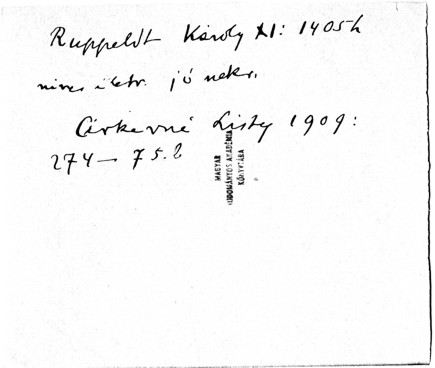 Ruppeldt Károly XI: 1405h
nincs életr. jó nekr.
Cirkevné Listy 1909:
274–75.l
MAGYAR
TUDOMÁNYOS AKADÉMIA
KÖNYVTÁRA